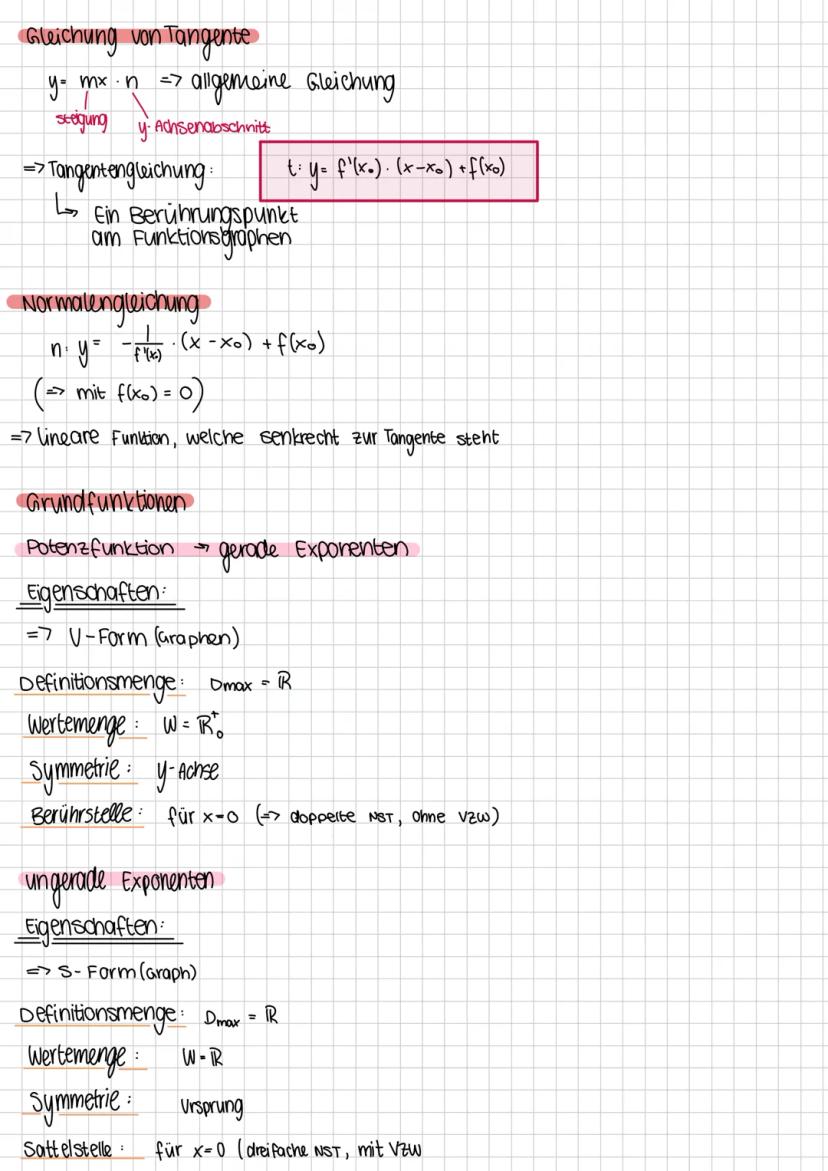 Gleichung von Tangente
y= mx · n => allgemeine Gleichung
steigung
y-Achsenabschnitt
=> Tangentengleichung: t: y= f'(x₀) · (x-x₀) + f(x₀)
↳ Ein Berührungspunkt
am Funktionsgraphen
Normalengleichung
n: y= -1/f'(x₀) · (x-x₀) + f(x₀)
(=> mit f(x₀) = 0)
=> lineare Funktion, welche senkrecht zur Tangente steht
Grundfunktionen
Potenzfunktion → gerade Exponenten
Eigenschaften:
=> U-Form (Graphen)
Definitionsmenge: Dmax = ℝ
Wertemenge: W = ℝ⁺₀
Symmetrie: y-Achse
Berührstelle: für x=0 (=> doppelte NST, ohne VZW)
ungerade Exponenten
Eigenschaften:
=> S-Form (Graph)
Definitionsmenge: Dmax = ℝ
Wertemenge: W=ℝ
Symmetrie: Ursprung
Sattelstelle: für x=0 (dreifache NST, mit VZW